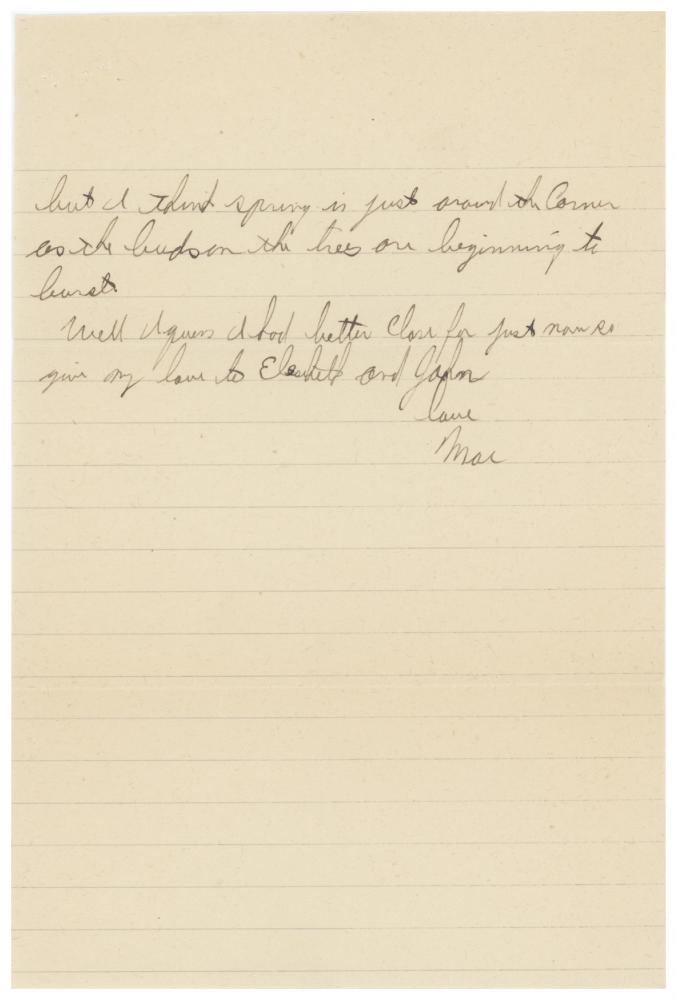 but I think spring is just around the Corner
as the buds on the trees are beginning to
burst.
Well I guess I had better Close for just now so
give my love to and John
love
Mac